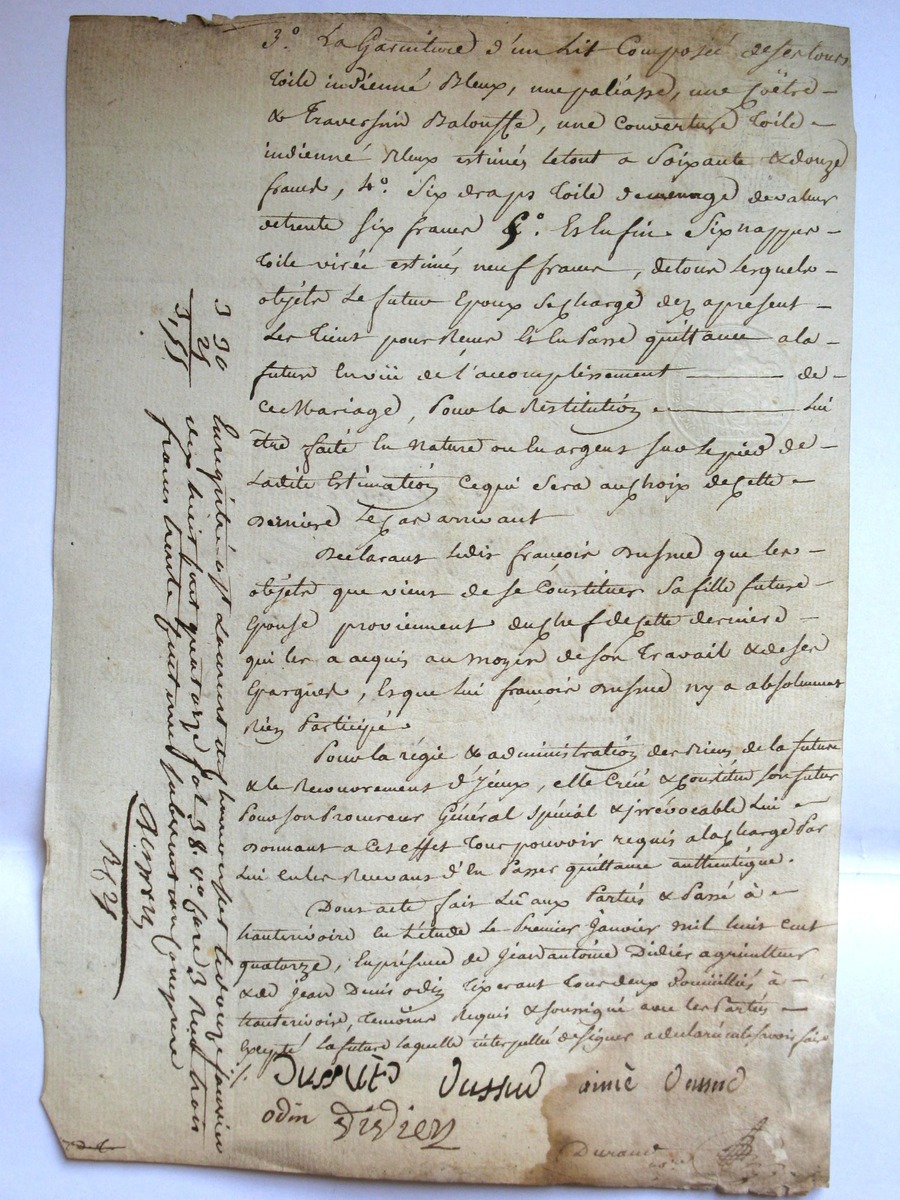 3.o La Garniture d'un Lit Composée de ses tours
toile indienné Bleux, une paliasse, une
& Traversin Balouffe, une Couverture Toile
indienné Bleux estimés le tout a Soixante & douze
francs, 4.o Six draps toile de menage de valeur
de trente six francs 5.o Et En fin Six nappes
toile virée estimés neuf francs, de tous Lesquels
objéts Le futur Epoux Se charge dez apresent
Les tient pour Reçus Et En Passe quittance a la
future En vüe de l'acomplissement de
Ce Mariage, Pour la Restitution Lui
être faite En Nature ou En argent sur Le pied de
Ladite Estimation Ce qui Sera au choix de cette
derniere Le cas arrivant
Declarant Ledit françois Dussud que les
objéts que vient de se Constituer Sa fille future
Epouse proviennent du chef de cette derniere
qui les a acquis au moyen de son Travail & de ses
Epargnes, Et que Lui françois Dussud n'y a absolument
Rien Participé
Pour la régie & administration des Biens de la future
& le Recouvrement d'Iceux, elle Créé & Constitue Son futur
Pour Son Procureur Général Spécial & jrrévocable Lui
Donnant a Cet effet Tout pouvoir requis a la charge Par
Lui en les Recevant d'En Passer quittance authentique.
Dont acte fait Lû aux Parties & Passé à
hauterivoire En L'étude Le Premier Janvier mil huit cent
quatorze, En présence de Jean antoine Didier agriculteur
& de Jean Denis odin Tixerant Tous deux Domiciliés à
hauterivoire, temoins Requis & soussigné avec les Parties
Excepté La future laquelle interpellée de signer a declaré ne le savoir faire
Dussud Dussud aimé Dussud
odin Didier
Durand
3 30
25
3,55
Enregistré à St Laurent de chamousset le douze janvier
dix huit cent quatorze fol 38 v.o Case 3 Reçu trois
francs trente